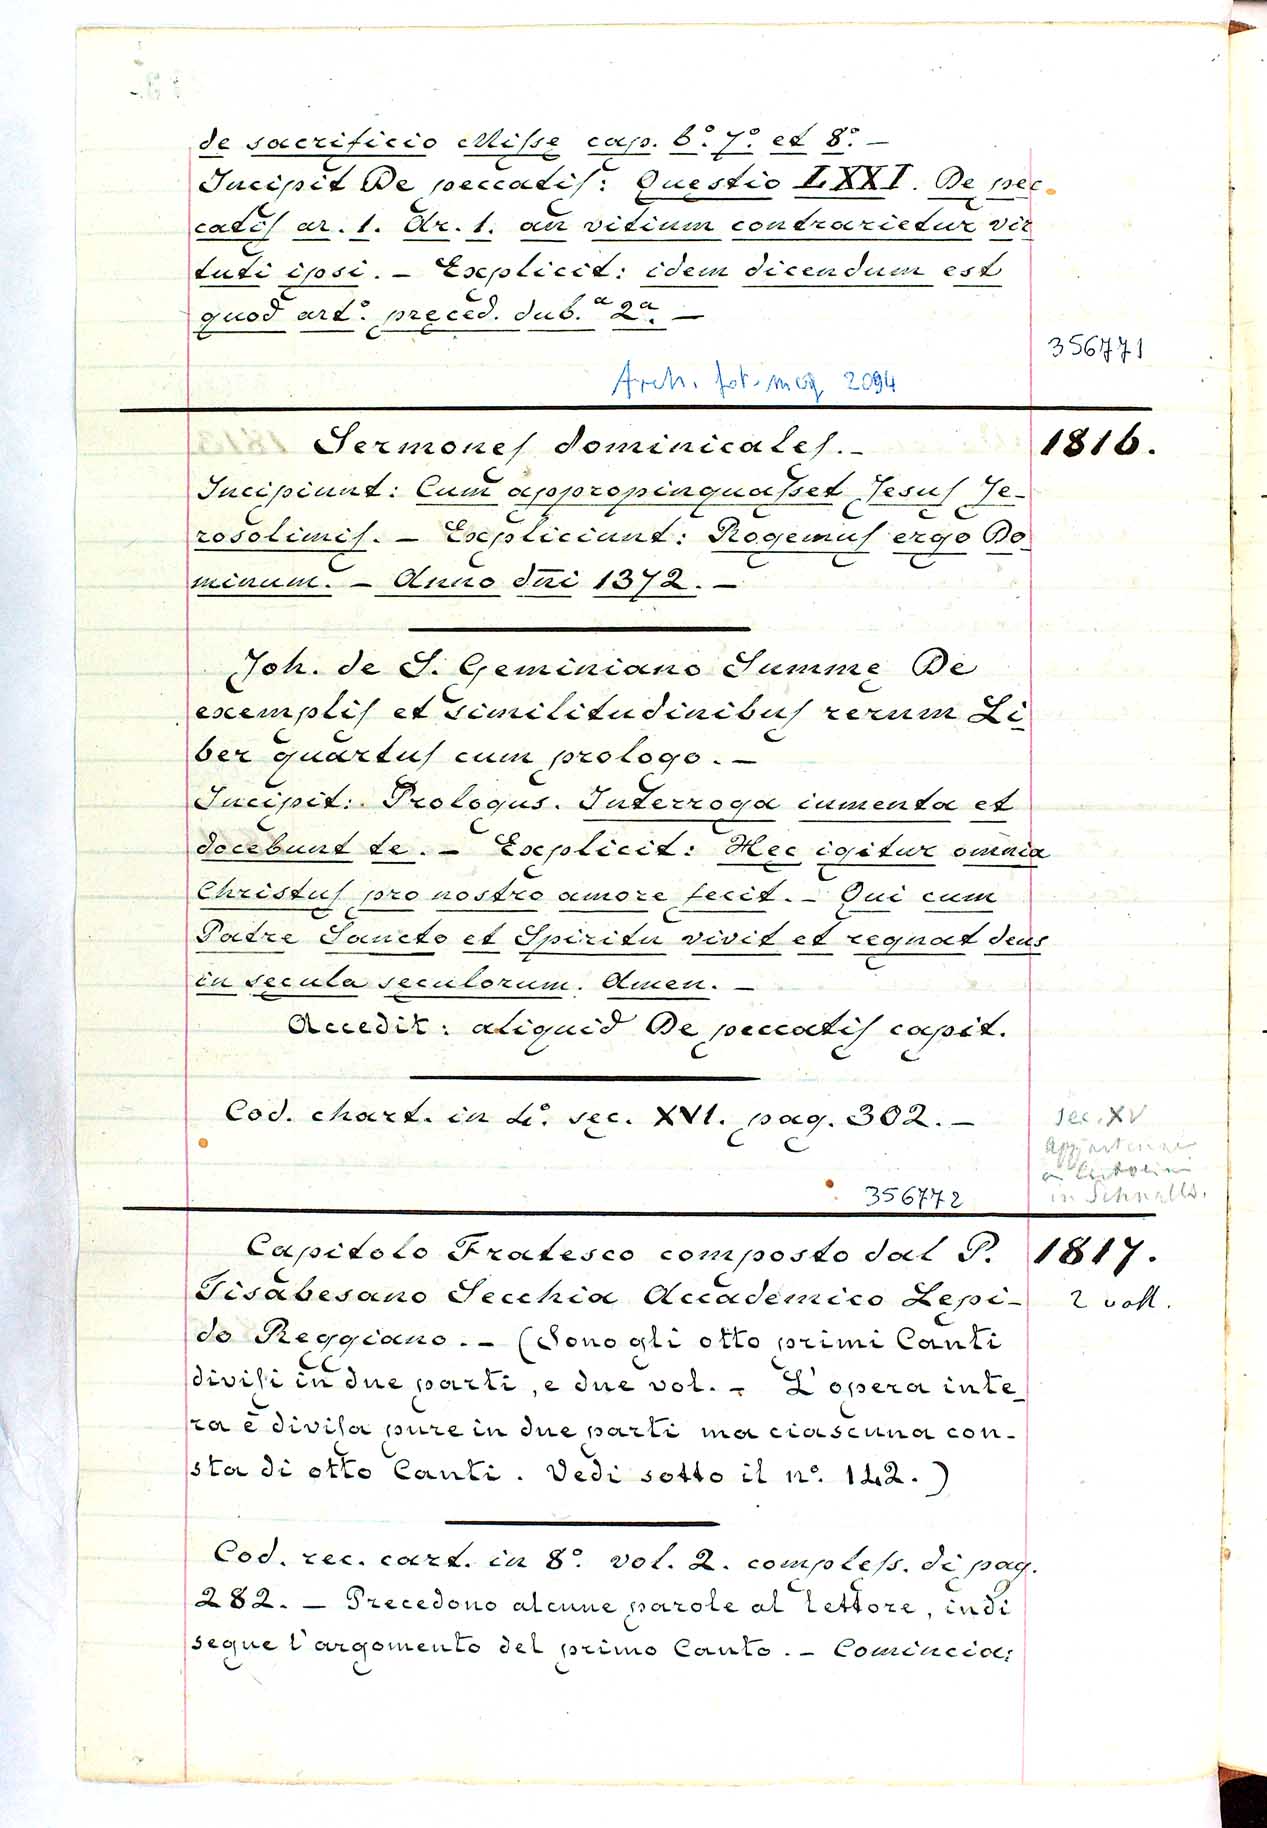 de sacrificio Missę cap. 6.° 7.° et 8.° –
Incipit De peccatis: Questio LXXI. De pec
catis ar. 1. Ar. 1. an vitium contrarietur vir
tuti ipsi. – Explicit: idem dicendum est
quod art.° pręced. dub.ª 2ª. –
356771
Arch. fot. neg. 2094
Sermones dominicales. –
1816.
Incipiunt: Cum appropinquasset Jesus Je-
rosolimis. – Expliciunt: Rogemus ergo Do
minum. – Anno dn̄i 1372. –
Joh. de S. Geminiano Summę De
exemplis et similitudinibus rerum Li
ber quartus cum prologo. –
Incipit: Prologus. Interroga iumenta et
docebunt te. – Explicit: Hec igitur omnia
Christus pro nostro amore fecit. – Qui cum
Patre Sancto et Spiritu vivit et regnat deus
in secula seculorum. Amen. –
Accedit: aliquid De peccatis capit.
Cod. chart. in 4°. sec. XVI. pag. 302. –
sec. XV
in Schnalls.
356772
Capitolo Fratesco composto dal P.
1817.
Tisabesano Secchia Accademico Lepi-
2 voll.
do Reggiano. – (Sono gli otto primi Canti
divisi in due parti, e due vol. – L'opera inte-
ra è divisa pure in due parti ma ciascuna con-
sta di otto Canti. Vedi sotto il n°. 142.)
Cod. rec. cart. in 8°. vol. 2. compless. di pag.
282. – Precedono alcune parole al lettore, indi
segue l'argomento del primo Canto. – Comincia: